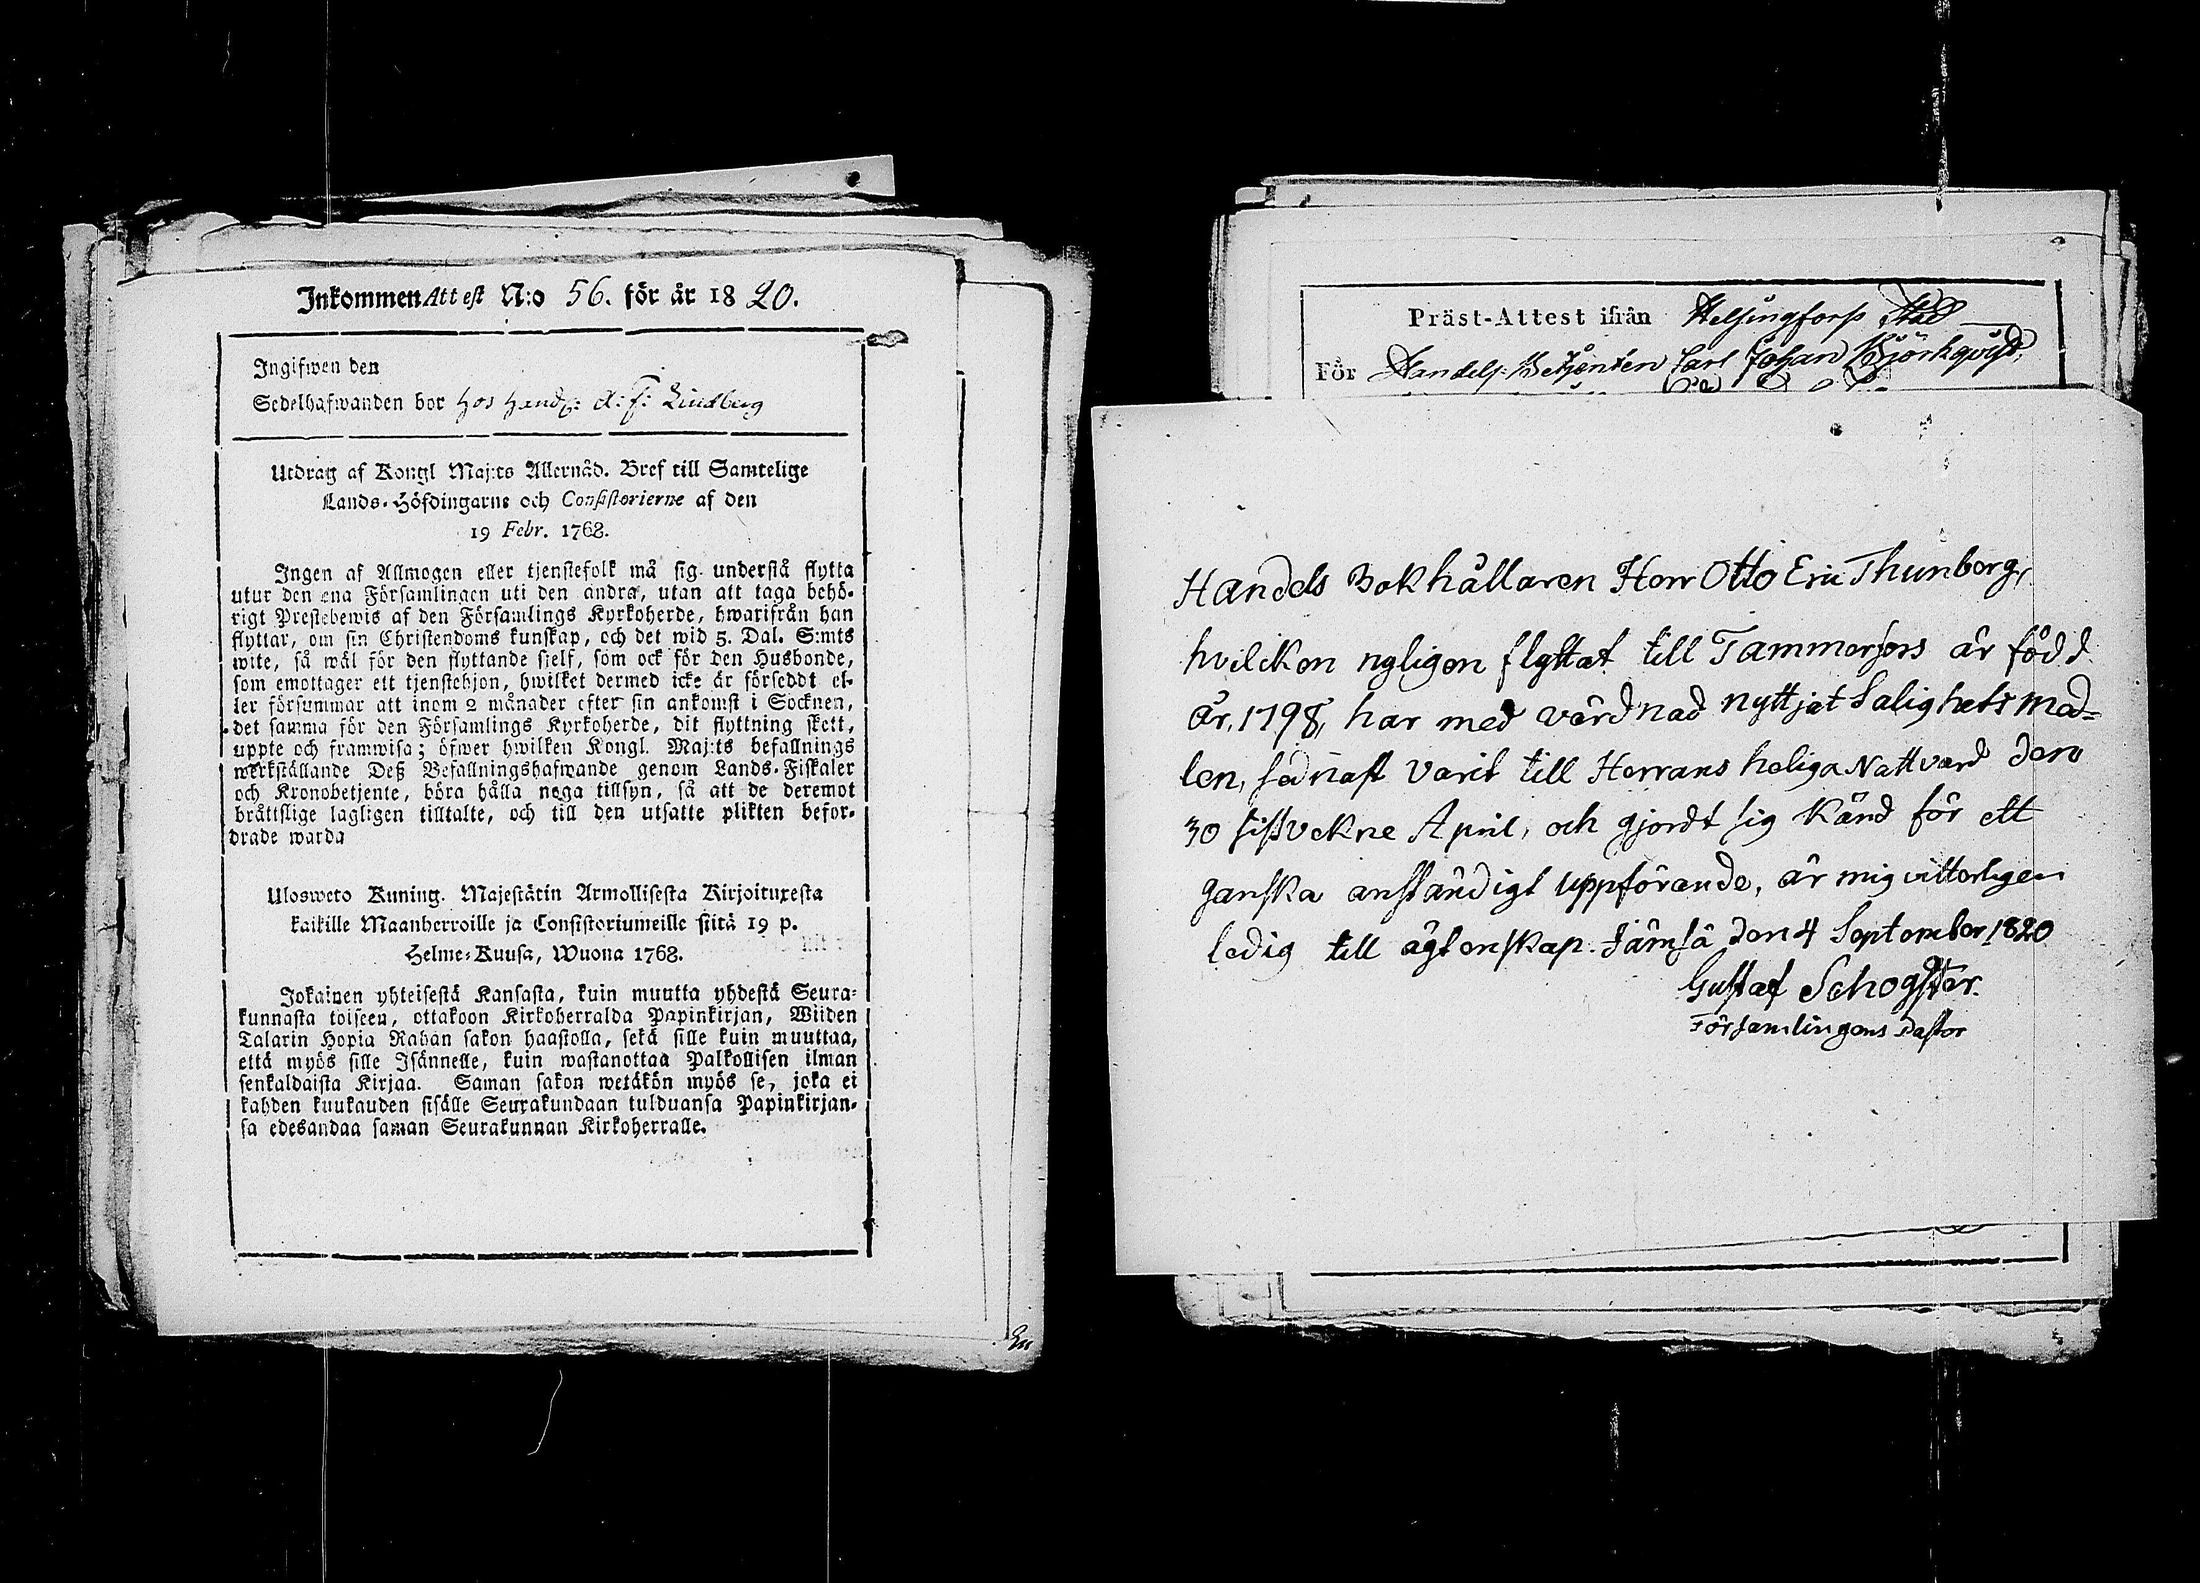 Inkommen Attest N:o 56. för år 1820.
Ingifwen den
Sedelhafwanden bor hos Handl: A: F: Lindberg
Utdrag af Kongl Maj:ts Allernåd. Bref till Samtelige
Lands-Höfdingarne och Consistorierne af den
19 Febr. 1768.
Ingen af Allmogen eller tjenstefolk må sig understå flytta
utur den ena Församlingen uti den andra, utan att taga behö-
rigt Prestebewis af den Församlings Kyrkoherde, hwarifrån han
flyttar, om sin Christendoms kunskap, och det wid 5. Dal. S:mts
wite, så wäl för den flyttande sjelf, som ock för den Husbonde,
som emottager ett tjenstehjon, hwilket dermed icke är försedt el-
ler försummar att inom 2 månader efter sin ankomst i Socknen,
det samma för den Församlings Kyrkoherde, dit flyttning skett,
uppte och framwisa; öfwer hwilken Kongl. Maj:ts befallnings
werkställande Deß Befallningshafwande genom Lands-Fiskaler
och Kronobetjente, böra hålla noga tillsyn, så att de deremot
bråttslige lagligen tilltalte, och till den utsatte plikten befor-
drade warda
Ulosweto Kuning. Majestätin Armollisesta Kirjoituxesta
kaikille Maanherroille ja Consistoriumeille siitä 19 p.
Helme-Kuusa, Wuona 1768.
Jokainen yhteisestä Kansasta, kuin muutta yhdestä Seura-
kunnasta toiseen, ottakoon Kirkoherralda Papinkirjan, Wiiden
Talarin Hopia Rahan sakon haastolla, sekä sille kuin muuttaa,
että myös sille Isännelle, kuin wastanottaa Palkollisen ilman
senkaldaista Kirjaa. Saman sakon wetäkön myös se, joka ei
kahden kuukauden sisälle Seurakundaan tulduansa Papinkirjan-
sa edesandaa saman Seurakunnan Kirkoherralle.
Präst-Attest ifrån Helsingfors Stad
För Handels-Betjenten Carl Johan Björkqvist,
Handels Bokhållaren Herr Otto Eric Thunberg,
hvilcken nyligen flyttat till Tammerfors är född
År. 1798, har med vårdnad nyttjat Salighets med=
len, sednast varit till Herrans heliga Nattvard den
30 sistvekne April, och gjordt sig känd för ett
ganska anständigt uppförande, är mig vitterligen
ledig till ägtenskap. Jämsä den 4 September 1820
Gustaf Schogster.
Församlingens Pastor